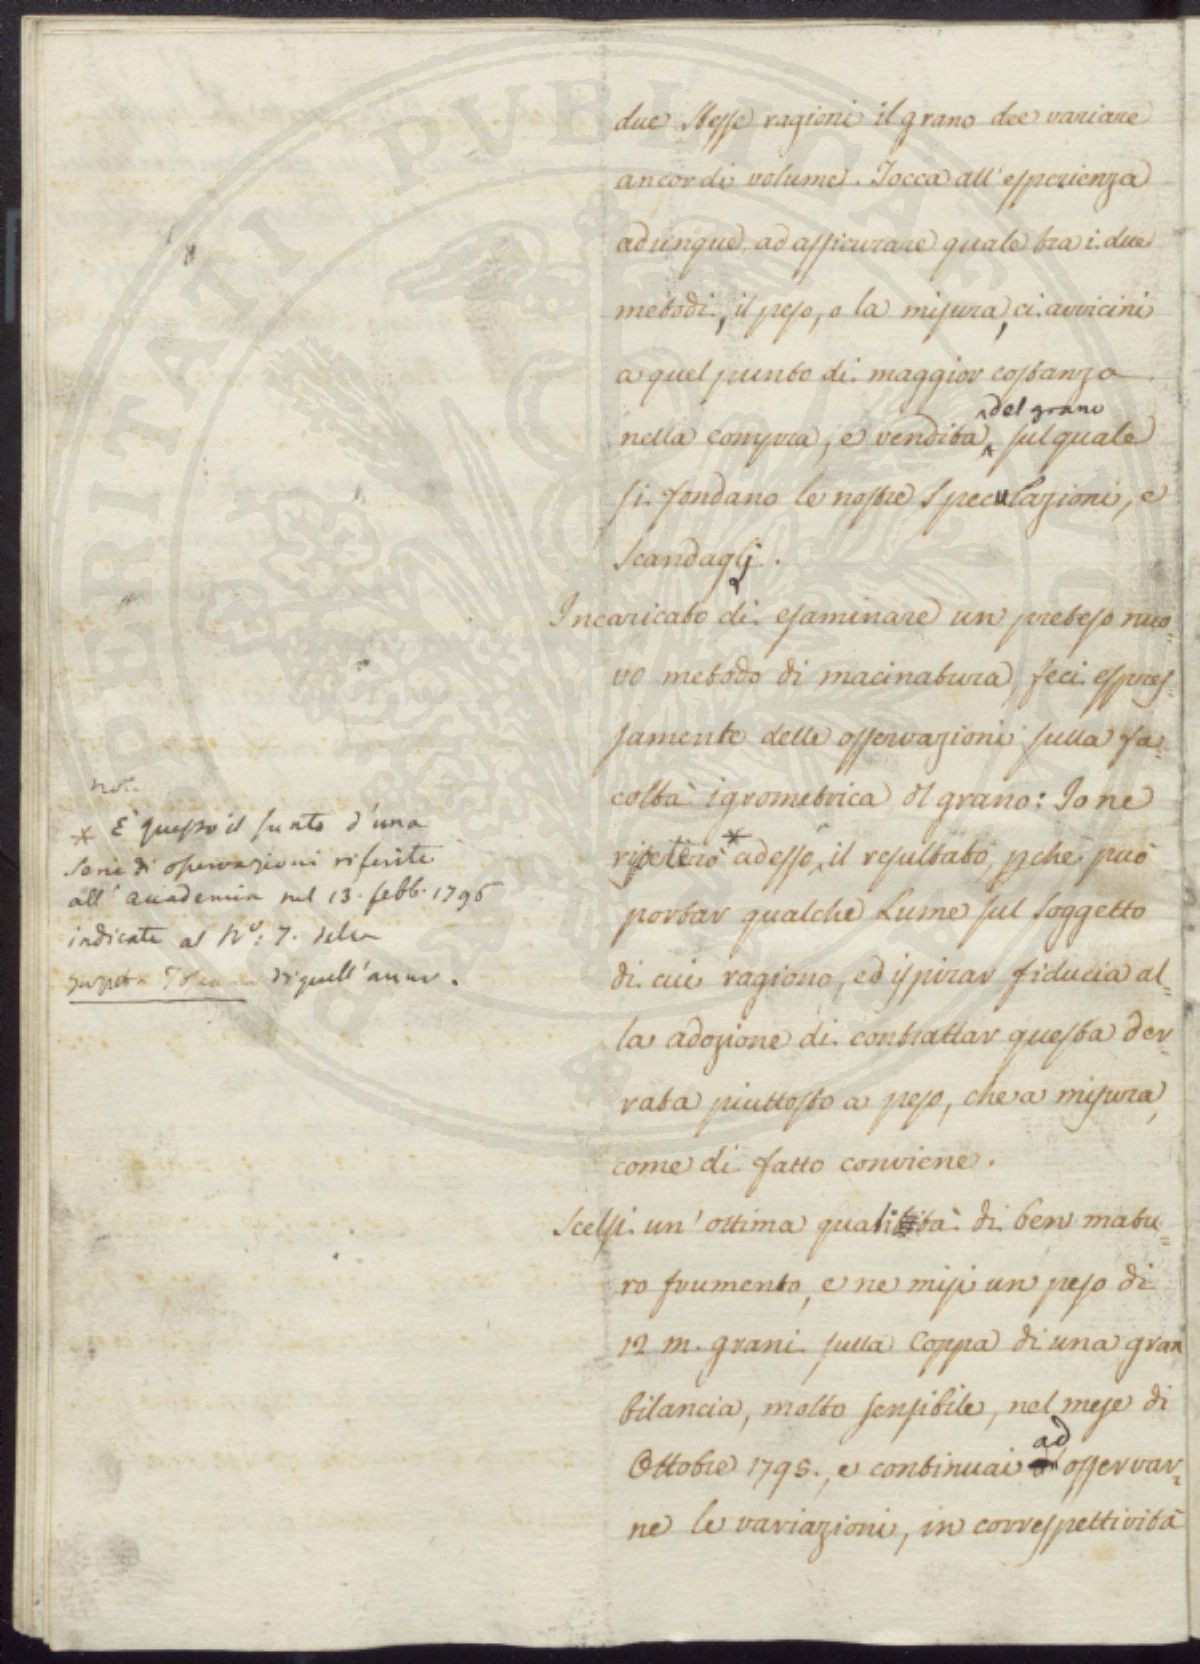 due stesse ragioni il grano dee variare
ancor di volume. Tocca all'esperienza
adunque, ad assicurare quale tra i due
metodi, il peso, o la misura, ci avvicini
a quel punto di maggior costanza
nella compra, e vendita ^del grano sul quale
si fondano le nostre speculazioni, e
scandaglj.
Incaricato di esaminare un preteso nuo=
vo metodo di macinatura, feci espres=
samente delle osservazioni sulla fa=
coltà igrometrica dl grano: Io ne
ripeterò * adesso, il resultato, pche può
portar qualche Lume sul soggetto
di cui ragiono, ed ispirar fiducia al=
la adozione di contrattar questa der=
rata piuttosto a peso, che a misura,
come di fatto conviene.
Scelsi un'ottima qualità di ben matu=
ro frumento, e ne misi un peso di
12 m. grani sulla Coppa di una gran
bilancia, molto sensibile, nel mese di
Ottobre 1795., e continuai ad osservar=
ne le variazioni, in correspettività
* È questo il sunto d'una
serie di osservazioni riferite
all'accademia nel 13. febb. 1796
indicate al N°: 7. della
di quell'anno.
PERITATI PVBLICAE